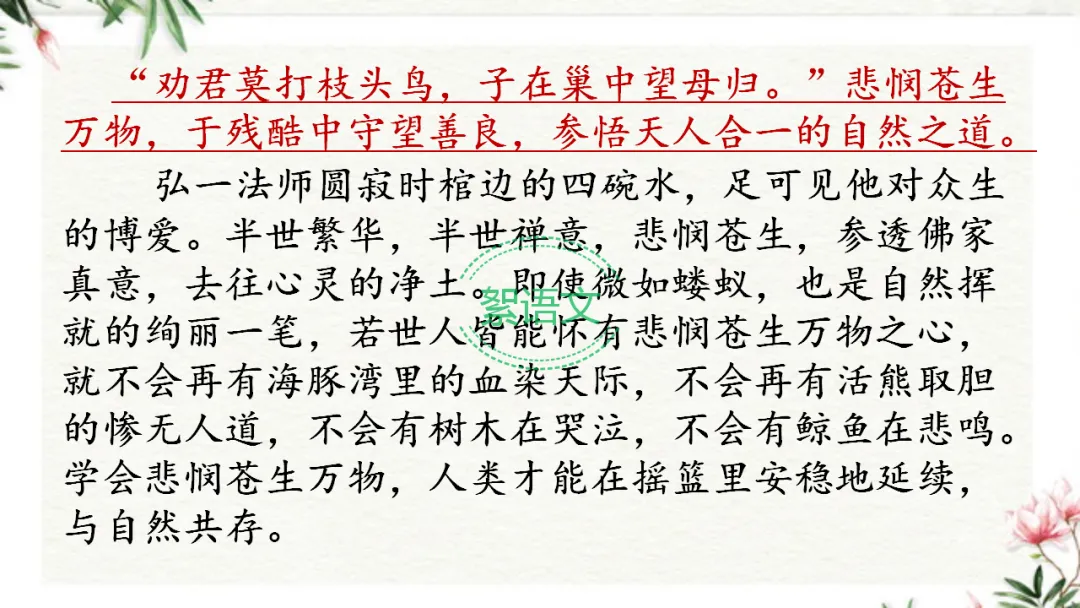 “劝君莫打枝头鸟，子在巢中望母归。”悲悯苍生
万物，于残酷中守望善良，参悟天人合一的自然之道。
弘一法师圆寂时棺边的四碗水，足可见他对众生
的博爱。半世繁华，半世禅意，悲悯苍生，参透佛家
真意，去往心灵的净土。即使微如蝼蚁，也是自然挥
就的绚丽一笔，若世人皆能怀有悲悯苍生万物之心，
就不会再有海豚湾里的血染天际，不会再有活熊取胆
的惨无人道，不会有树木在哭泣，不会有鲸鱼在悲鸣。
学会悲悯苍生万物，人类才能在摇篮里安稳地延续，
与自然共存。
絮语文